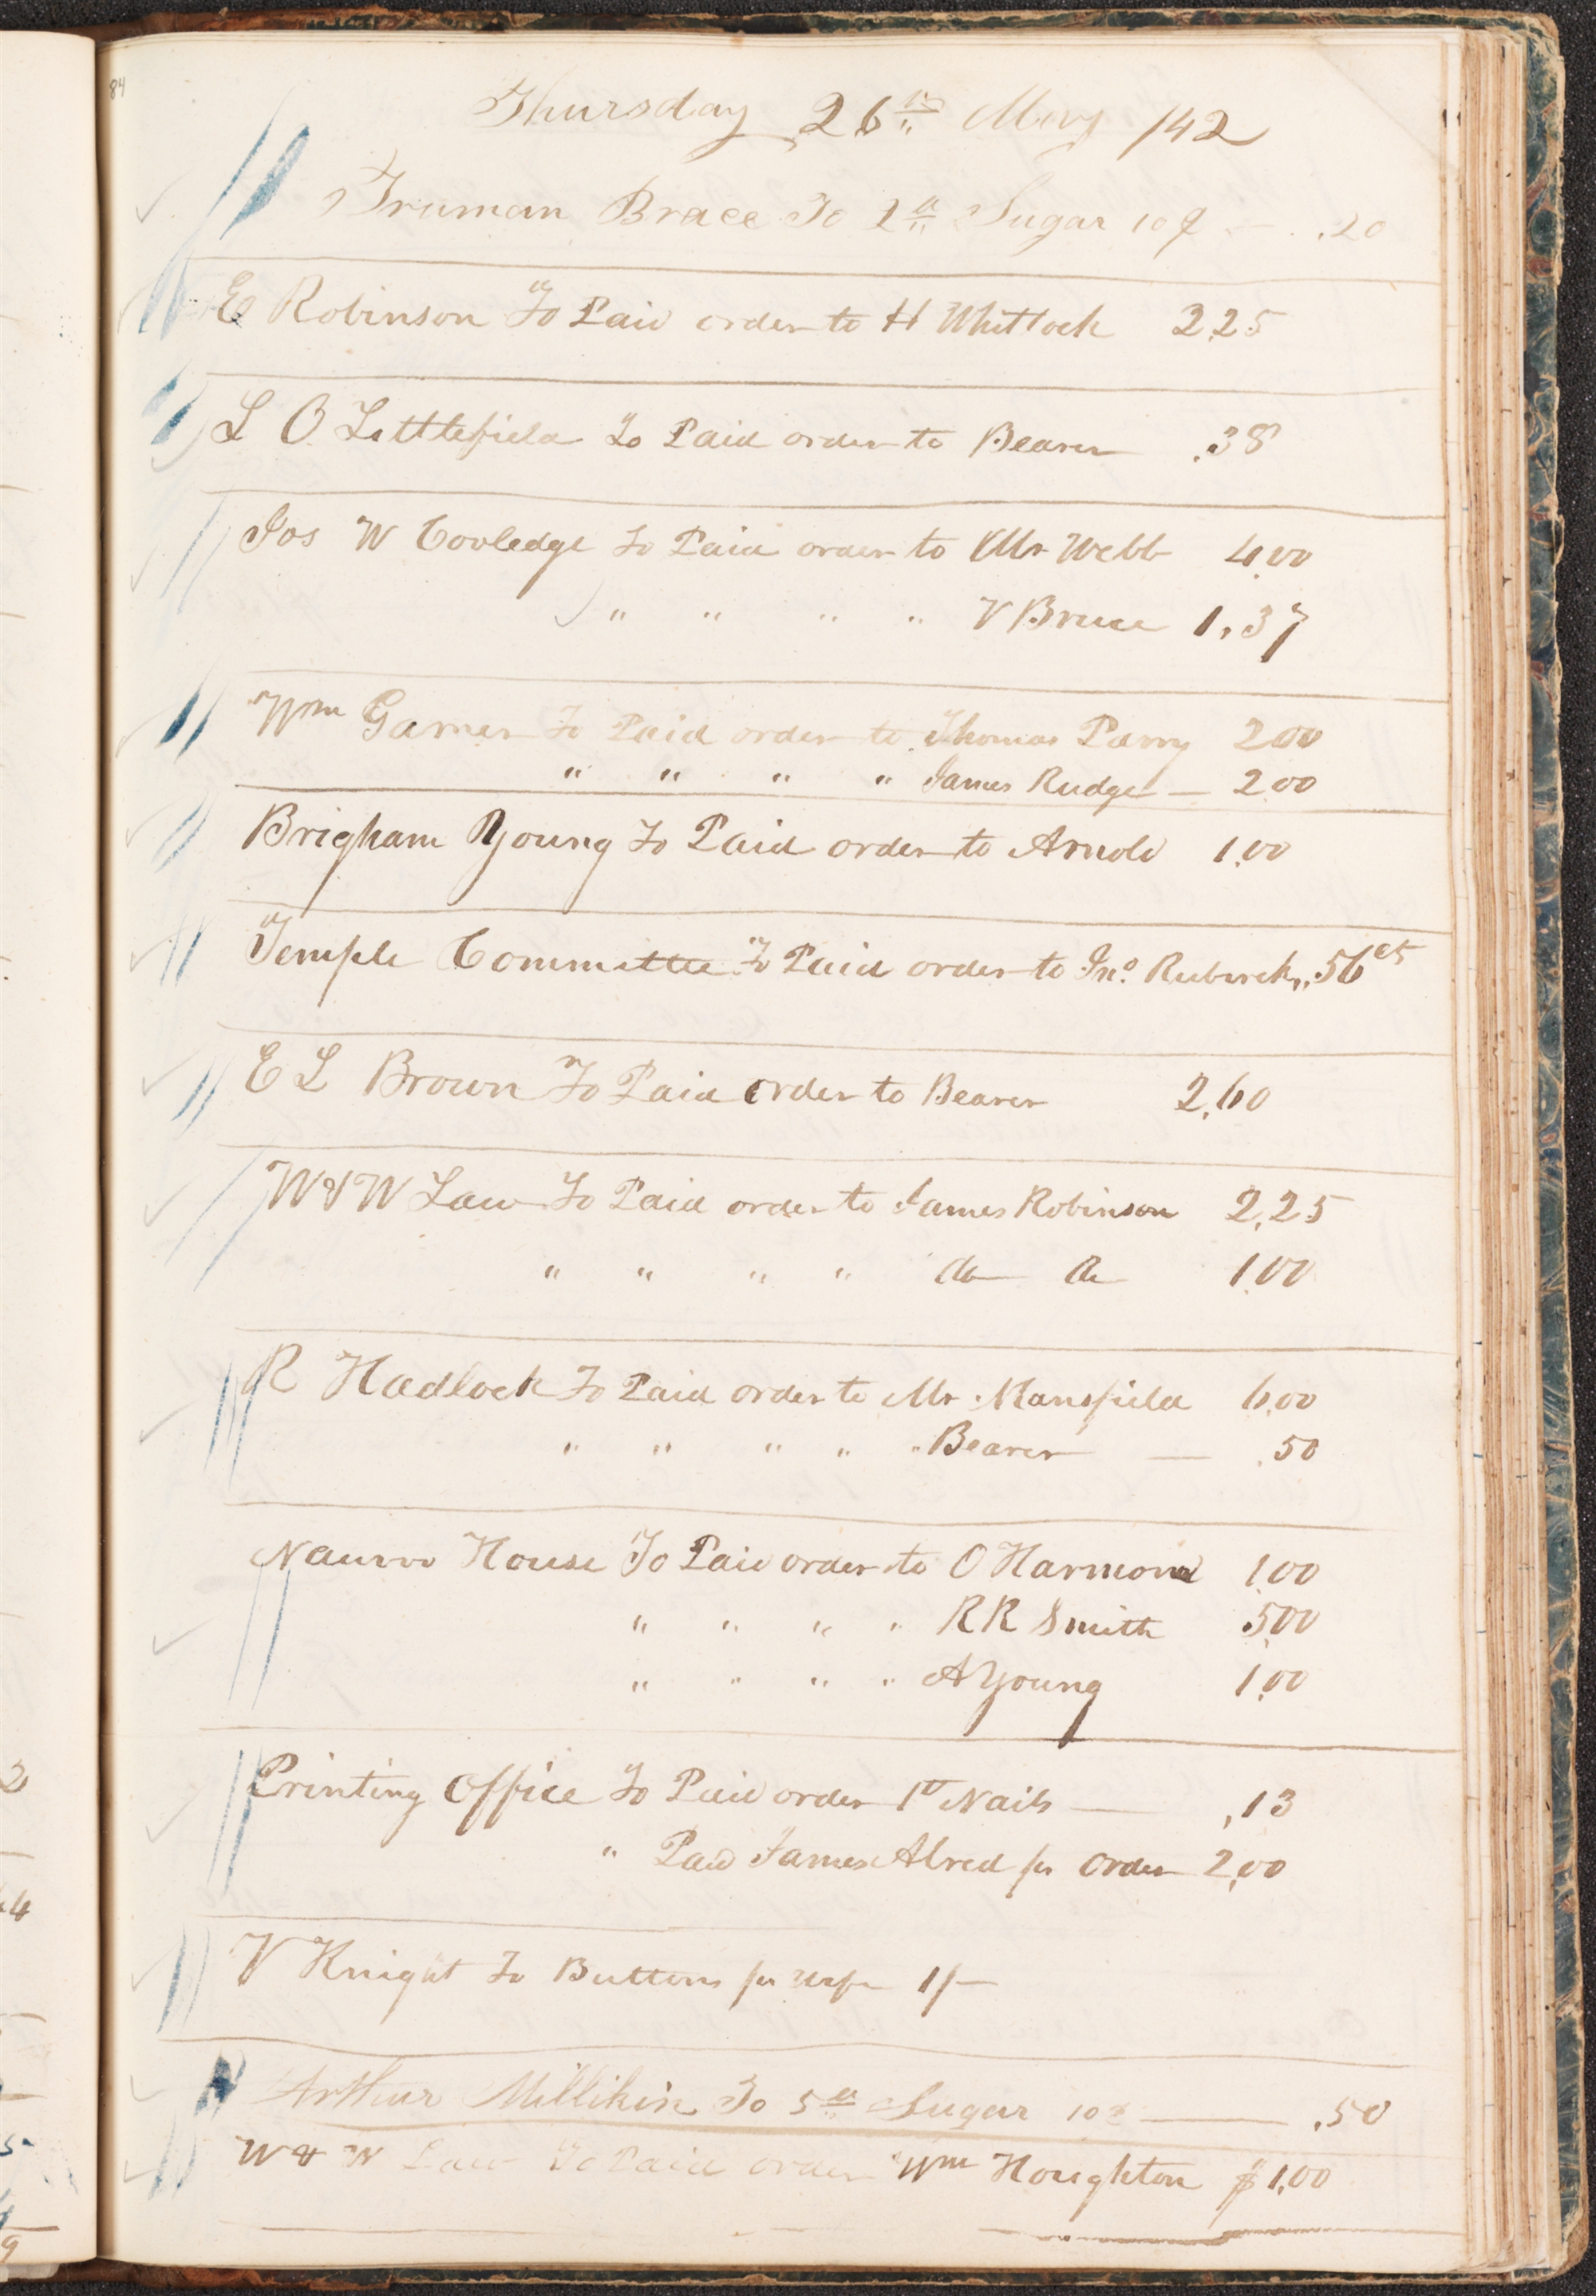 84
Thursday 26th May /42
Truman Brace To 2 lb Sugar 10¢ — .20
E Robinson To Paid order to H Whitlock 2.25
L O Littlefield To Paid order to Bearer .38
Jos W Cooledge To Paid order to Mr Webb 4.00
" " " " V Bruce 1.37
Wm Garner To Paid order to Thomas Parry 2.00
" " " " James Rudge — 2.00
Brigham Young To Paid order to Arnold 1.00
Temple Committee To Paid order to Jno. .56 cts
E L Brown To Paid order to Bearer 2.60
W & W Law To Paid order to James Robinson 2.25
" " " " do do 1.00
R Hadlock To Paid order to Mr Mansfield 6.00
" " " " " Bearer — .50
Nauvoo House To Paid order to O Harmon 1.00
" " " " R R Smith 5.00
" " " " A Young 1.00
Printing Office To Paid order 1 lb Nails — .13
" Paid James Alred per order 2.00
V Knight To Buttons per wife 1/—
Arthur Millikin To 5 lb Sugar 10¢ — .50
W & W Law To Paid order Wm Houghton $1.00